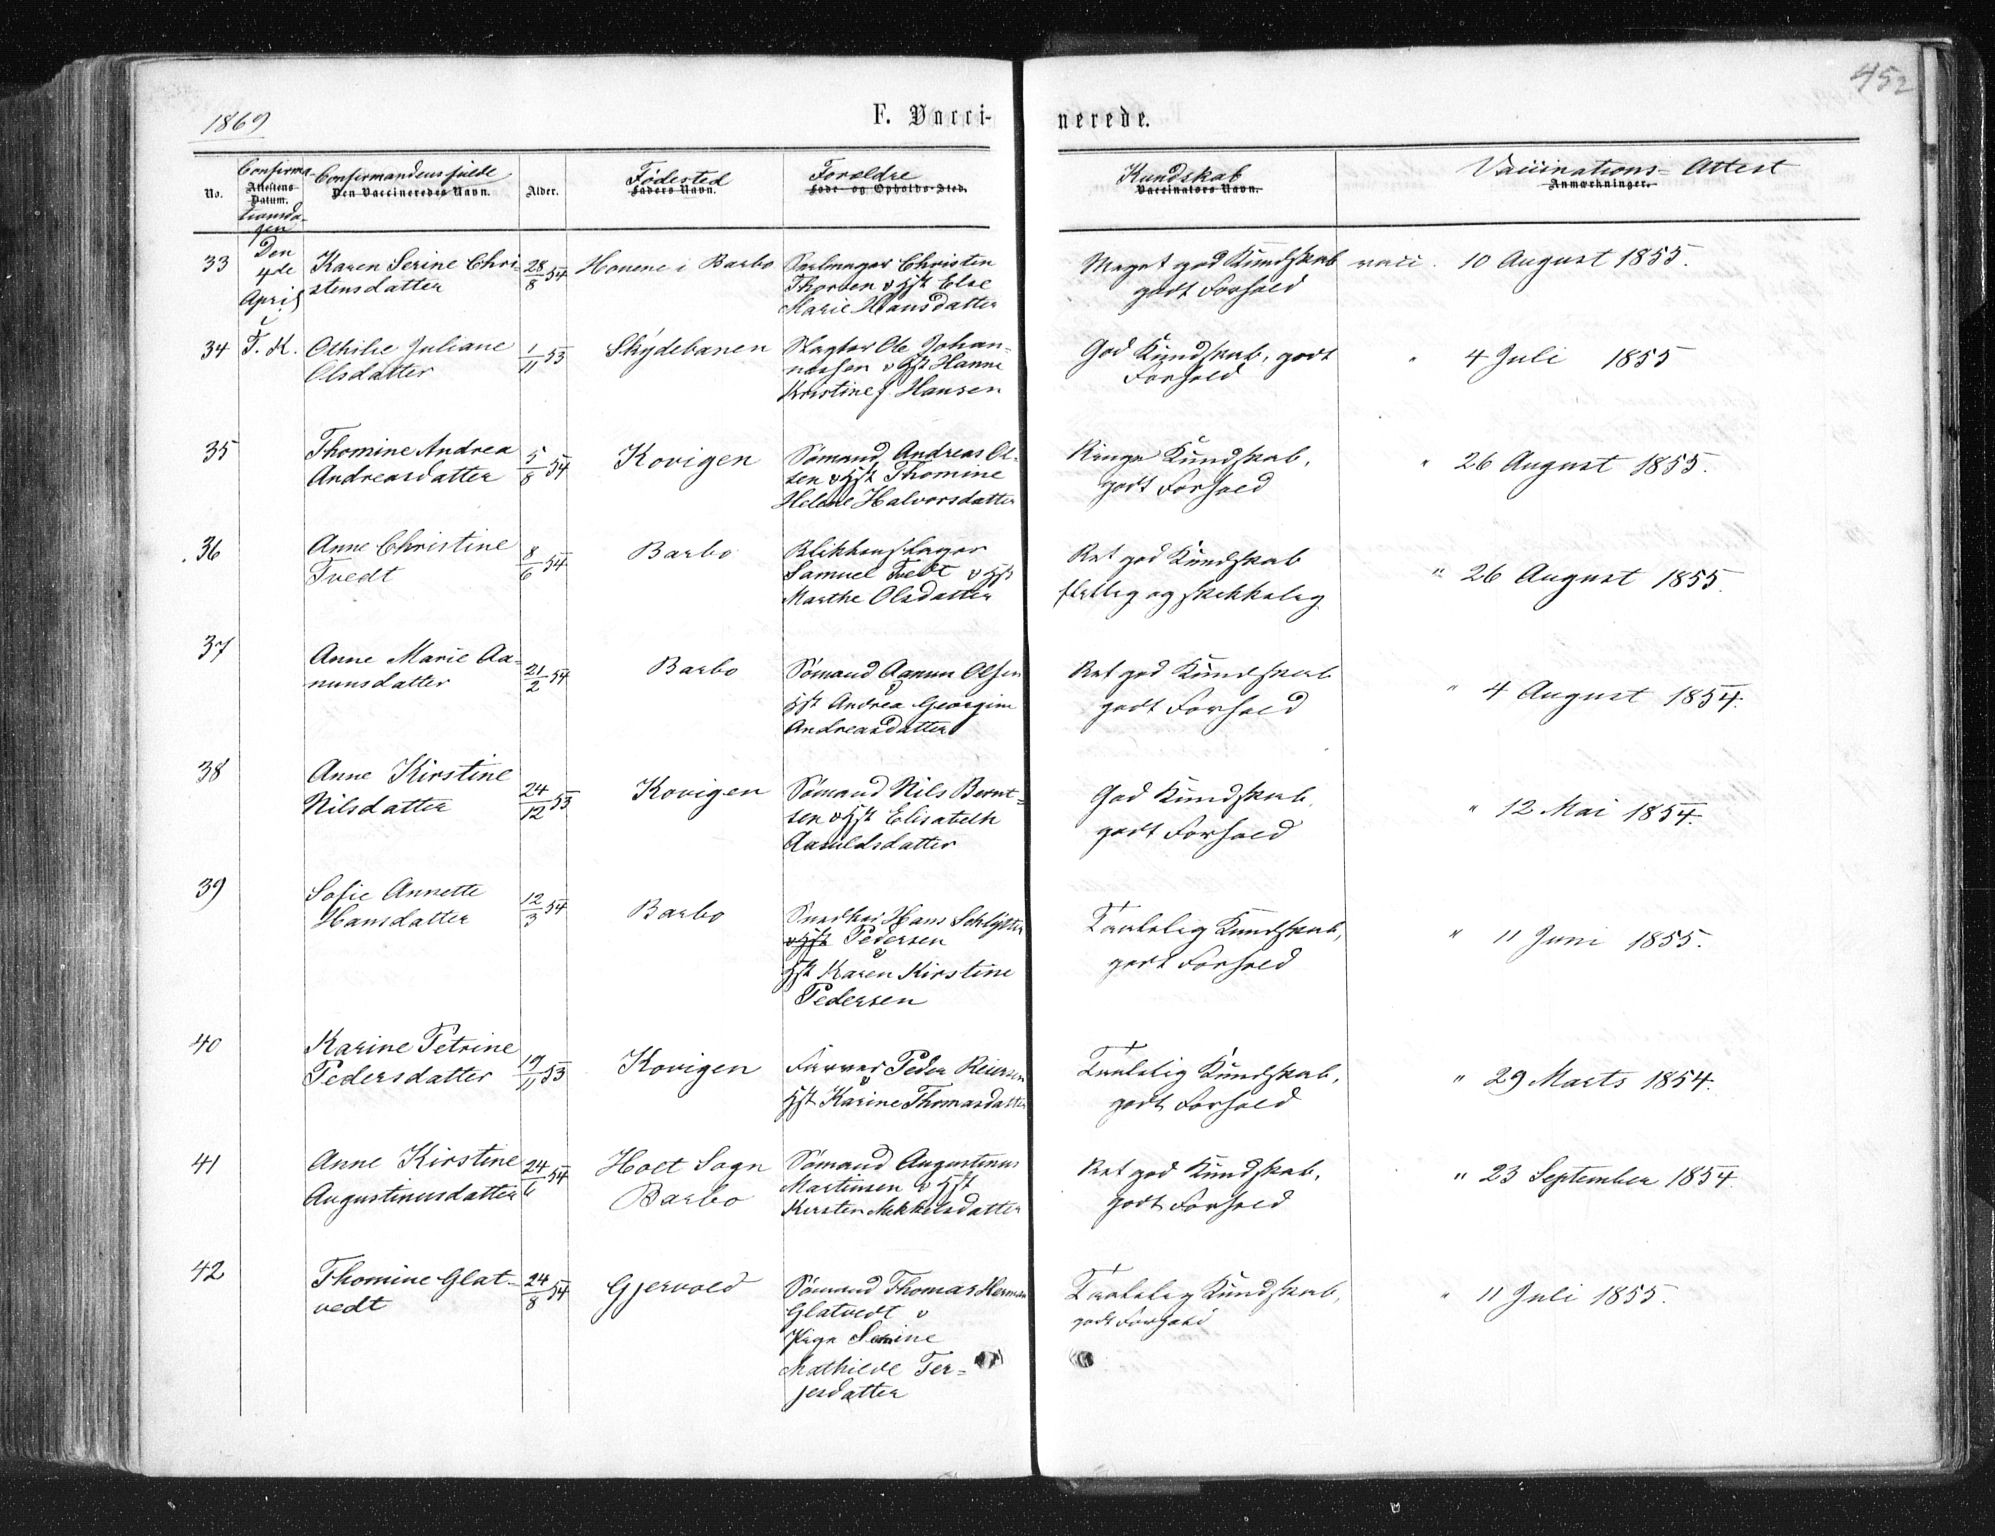 452
1869
F. Vacci-
nerede.
No.
Confirma-
Attestens
Datum.
tionsda-
gen
Confirmandens fulde
Den Vaccineredes Navn.
Alder.
Fødested
Faders Navn.
Forældre
Føde- og Opholds-Sted.
Kundskab
Vaccinators Navn.
Vaccinations-Attest
Anmærkninger.
33 Den 4de April Karen Serine Chri- 28/8 54 Havene i Barbo Christen Meget god Kundskab vacc. 10 August 1855.
stensdatter Thorsen o Hst Else godt Forhold
Marie Hansdatter
34 T. K. Othilie Juliane 1/11 53 Skydebanen Slagter Ole Johan- God Kundskab, godt " 4 Juli 1855
Olsdatter nessen o Hst Hanne Forhold
Kristine f Hansen
35 Thomine Andrea 5/8 54 Kovigen Sømand Andreas Ol- Ringe Kundskab, " 26 August 1855.
Andreasdatter sen o Hst Thomine godt Forhold
Helene Halvorsdatter
36 Anne Christine 8/6 54 Barbo Blikkenslager Ret god Kundskab " 26 August 1855.
Tvedt Samuel Tvedt o Hst flittig og skikkelig
Marthe Olsdatter
37 Anne Marie Aa- 21/2 54 Barbo Sømand Aanun Olsen Ret god Kundskab " 4 August 1854.
nunsdatter o Hst Andrea Georgine godt Forhold
Andreasdatter
38 Anne Kirstine 24/12 53 Kovigen Sømand Nils Bernt- God Kundskab, " 12 Mai 1854.
Nilsdatter sen o Hst Elisabeth godt Forhold
Aanuldsdatter
39 Sofie Annette 12/3 54 Barbo Snedker Hans Schlytter Taalelig Kundskab, " 11 Juni 1855.
Hansdatter o Hst Pedersen godt Forhold
o Hst Karen Kirstine
Pedersen
40 Karine Petrine 19/11 53 Kovigen Farver Peder Reiersen Taalelig Kundskab, " 29 Marts 1854.
Pedersdatter o Hst Karine Thomasdatter godt Forhold
41 Anne Kirstine 24/6 54 Holt Sogn Sømand Augustinus Ret god Kundskab, " 23 September 1854.
Augustinusdatter Barbo Martinsen o Hst godt Forhold
Kirsten Mekkelsdatter
42 Thomine Glat- 24/8 54 Gjervold Sømand Thomas Herman Taalelig Kundskab, " 11 Juli 1855.
vedt Glatvedt o godt Forhold
Pige Serine
Mathilde Ter-
jesdatter